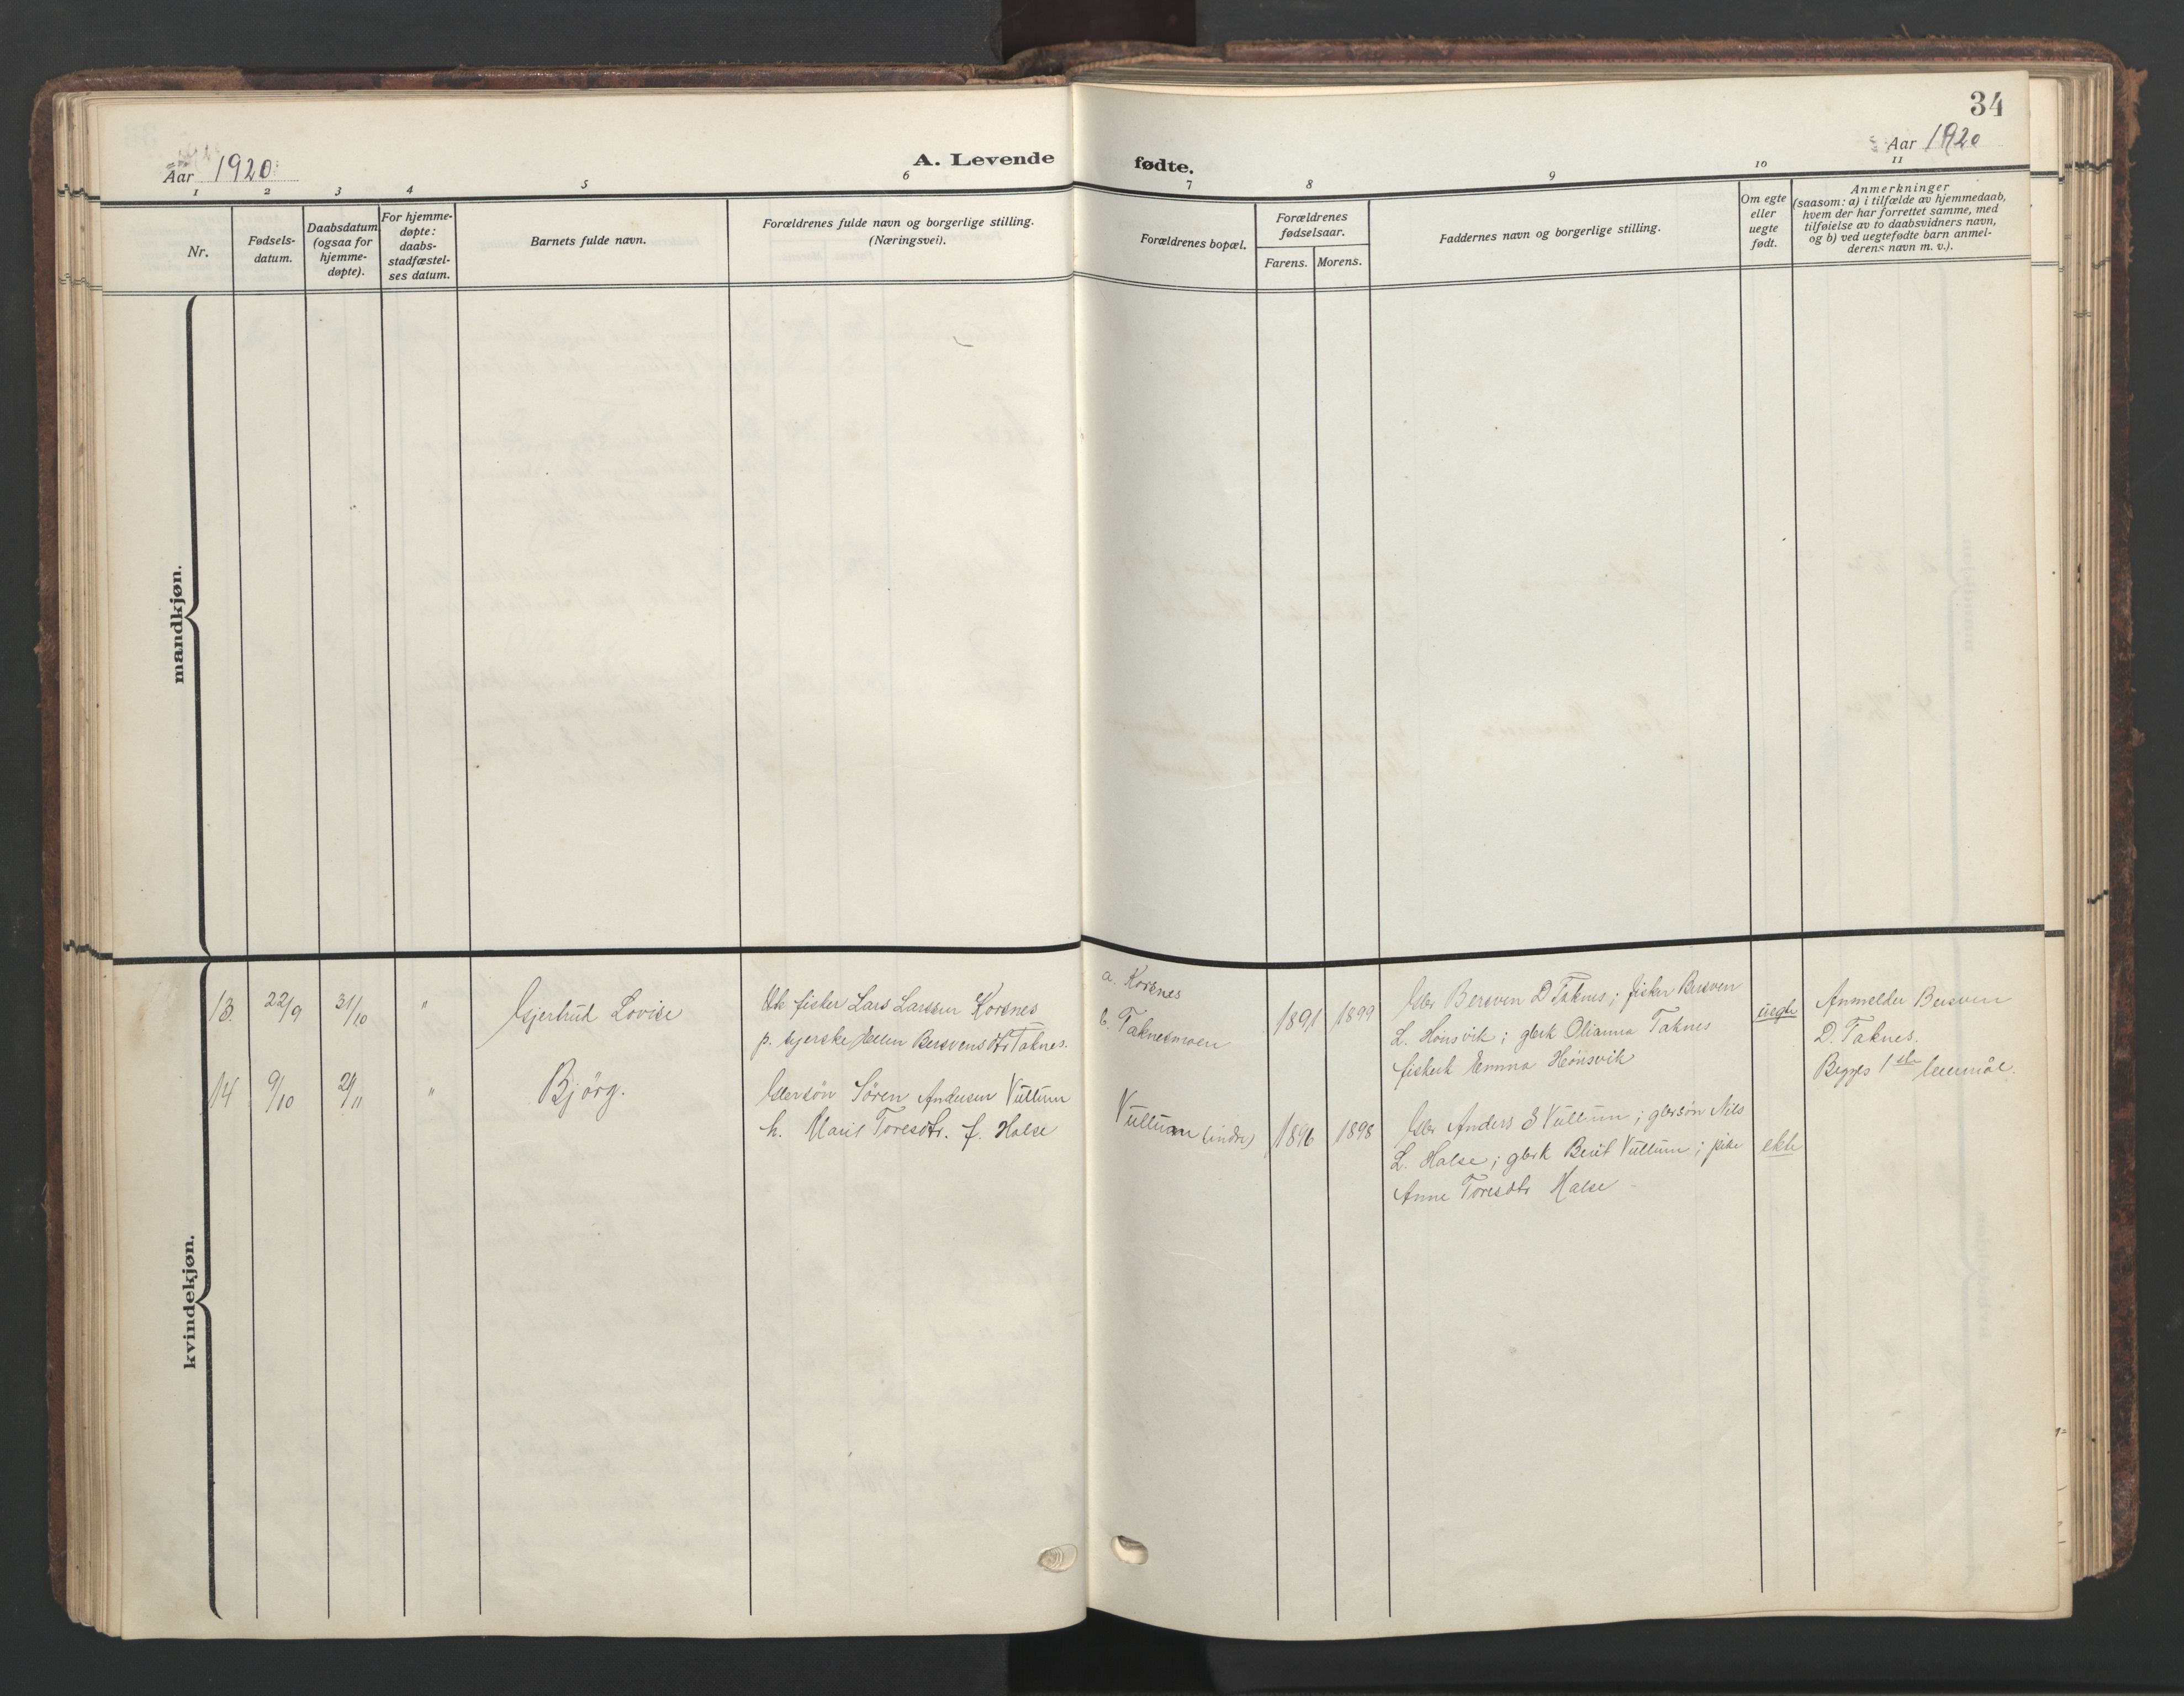 34
Aar 1920
A. Levende
fødte.
Aar 1920
1 2 3 4 5 6 7 8 9 10 11
Nr.
Fødsels-
datum.
Daabsdatum
(ogsaa for
hjemme-
døpte).
For hjemme-
døpte:
daabs-
stadfæstel-
ses datum.
Barnets fulde navn.
Forældrenes fulde navn og borgerlige stilling.
(Næringsvei).
Forældrenes bopæl.
Forældrenes
fødselsaar.
Farens. Morens.
Faddernes navn og borgerlige stilling.
Om egte
eller
uegte
født.
Anmerkninger
(saasom: a) i tilfælde av hjemmedaab,
hvem der har forrettet samme, med
tilføielse av to daabsvidners navn,
og b) ved uegtefødte barn anmel-
derens navn m. v.).
mandkjøn.
kvindekjøn.
13. 22/9 31/10 "
Gjertrud Lovise
fisker Lars Larssen Korsnes
p. syerske Ellen Bersvensdtr Taknes.
a. Korsnes
b. Taknesmoen
1891 1899
Gbr Bersven D Taknes; fisker Bersven
L. Hönsvik; gbrk Olianna Taknes
fiskerk Emma Hönsvik
uegte
Anmelder Bersven
D. Taknes.
Begges 1ste leiermål.
14 9/10 21/11 "
Björg.
Gbrsön Sören Andersen Vullum
h. Marit Toresdtr. f. Halse
Vullum (indre)
1896 1898
Gbr Anders E Vullum; gbrsön Nils
L. Halse; gbrk Berit Vullum; pike
Anne Toresdtr Halse
ekte